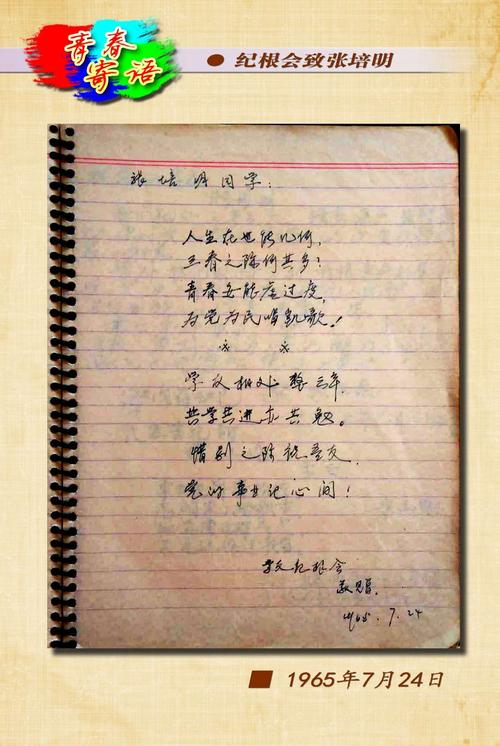 青春
寄语
● 纪根会致张培明
张培明同学:
人生在世能几何,
三春之际何其多!
青春岂能虚过度,
为党为民唱凯歌!
学友相处整三年,
共学共进亦共勉。
惜别之际祝学友,
党的事业记心间!
学友纪根会
敬题.
1965.7.24
■ 1965年7月24日